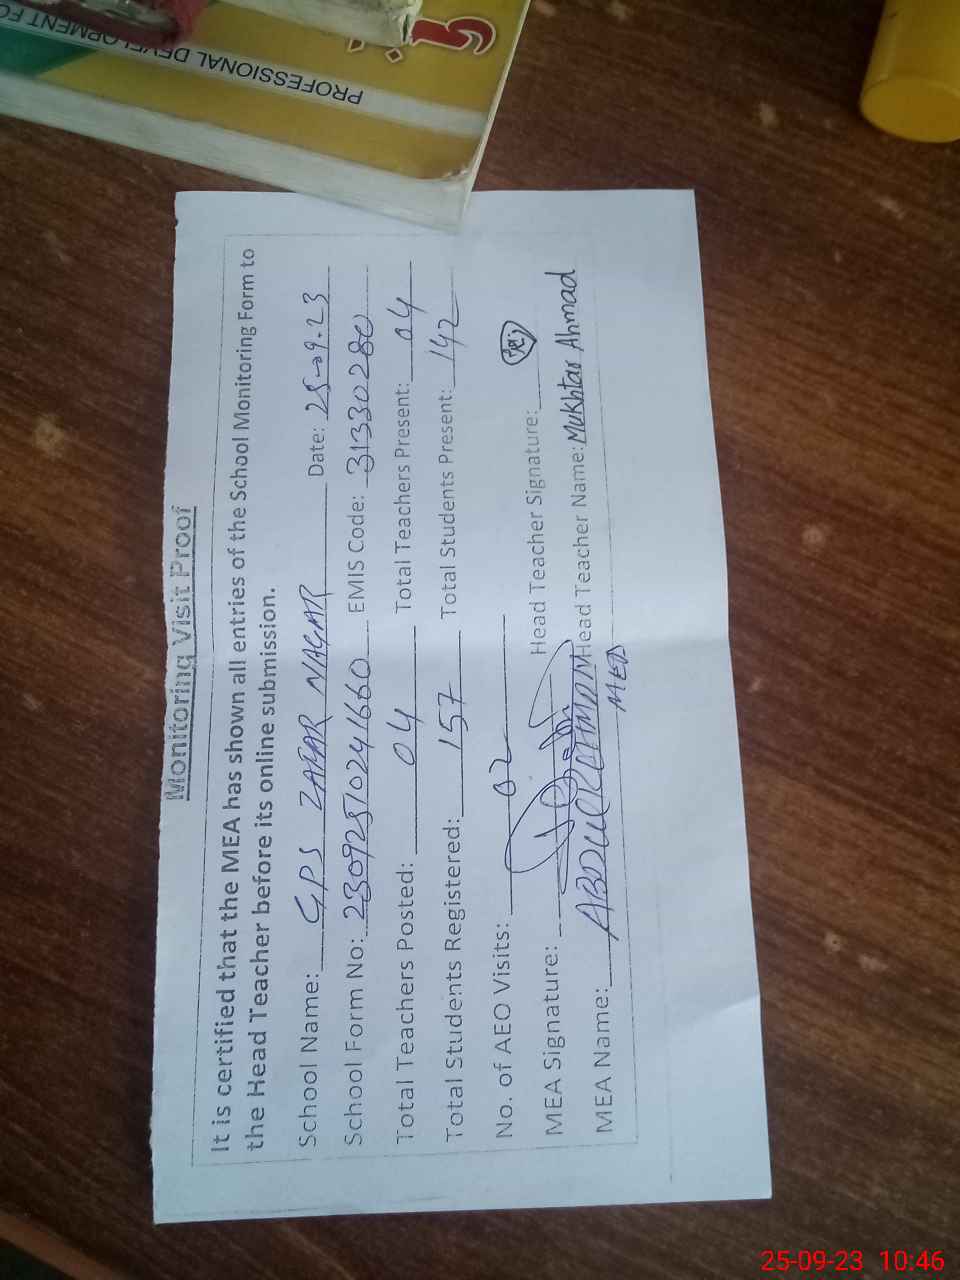 PROFESSIONAL DEVELOPMENT FO
Monitoring Visit Proof
It is certified that the MEA has shown all entries of the School Monitoring Form to
the Head Teacher before its online submission.
School Name: GPS ZAFAR NAGAR Date: 25-09-23
School Form No: 23092510241660 EMIS Code: 31330280
Total Teachers Posted: 04 Total Teachers Present: 04
Total Students Registered: 157 Total Students Present: 142
No. of AEO Visits: 02
MEA Signature: Head Teacher Signature:
MEA Name: ABDUL REHMAN Head Teacher Name: Mukhtar Ahmad
25-09-23 10:46